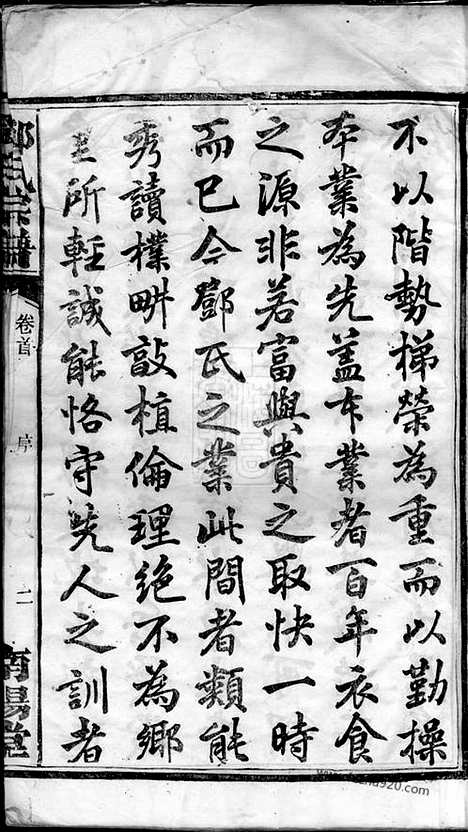 不以階勢梯榮為重而以勤操
本業為先盖本業者一百年衣食
之源非若富與貴之取快一時
而已今鄧氏之業此間者類能
秀讀樸畊敲植倫理絶不為鄉
里所輕誠能恪守先人之訓者
鄧氏宗譜
卷首
序
二
南陽堂